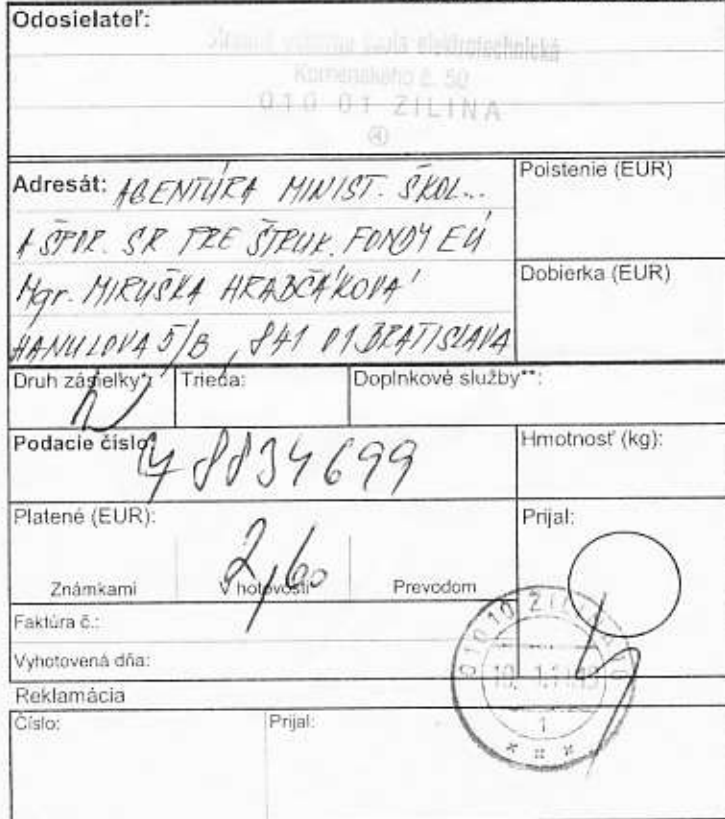 Odosielateľ:
škola elektrotechnická
Komenského č. 50
010 01 ŽILINA
Adresát: AGENTÚRA MINIST. ŠKOL...
A ŠPOR. SR PRE ŠTRUK. FONDY EÚ
Mgr. MIRUŠKA HRABČÁKOVÁ
HANULOVA 5/B, 841 01 BRATISLAVA
Poistenie (EUR)
Dobierka (EUR)
Druh zásielky*:
Trieda:
Doplnkové služby**:
Podacie číslo
48834699
Hmotnosť (kg):
Platené (EUR):
2,60
Známkami
V hotovosti
Prevodom
Prijal:
Faktúra č.:
Vyhotovená dňa:
010 10 ŽILINA
1
Reklamácia
Číslo:
Prijal: